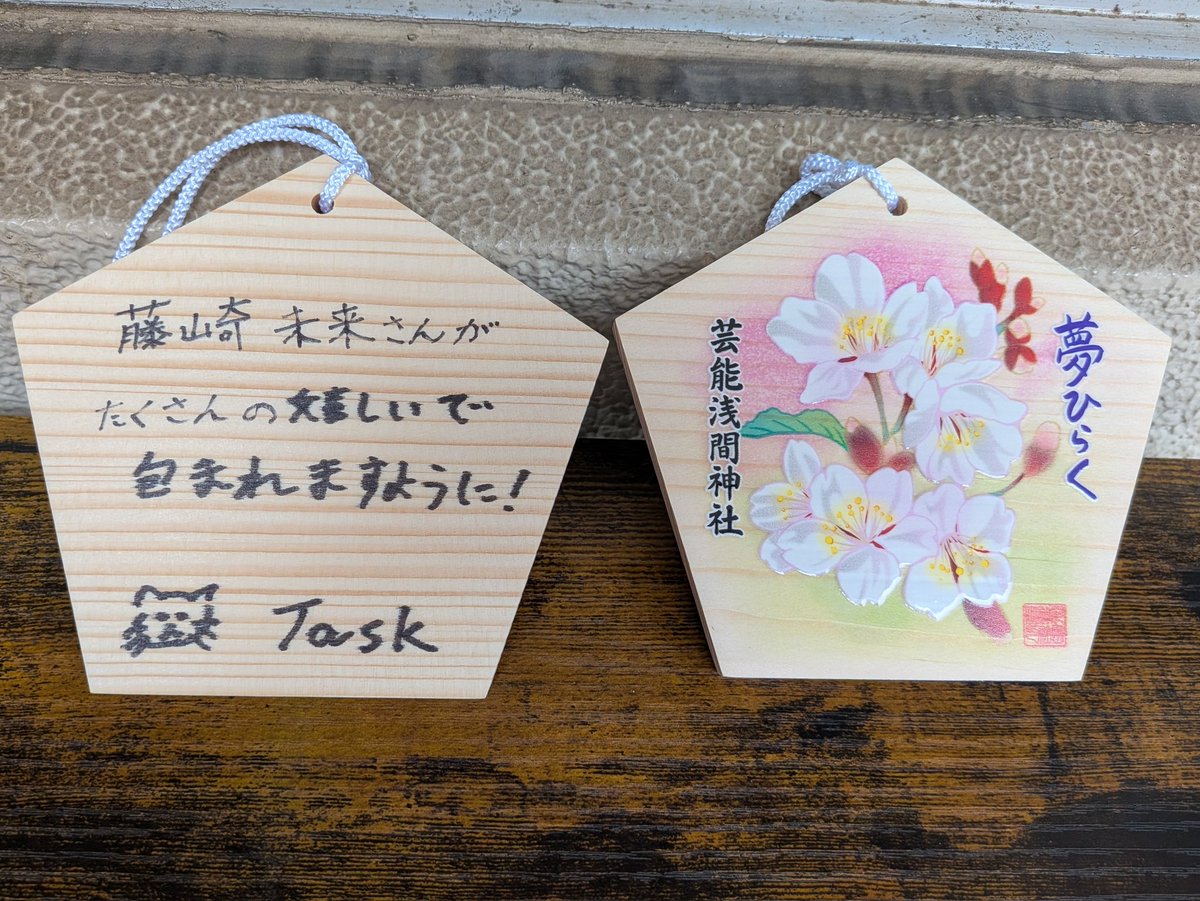 藤崎 未来さんが
たくさんの嬉しいで
包まれますように!
Task
夢ひらく
芸能浅間神社